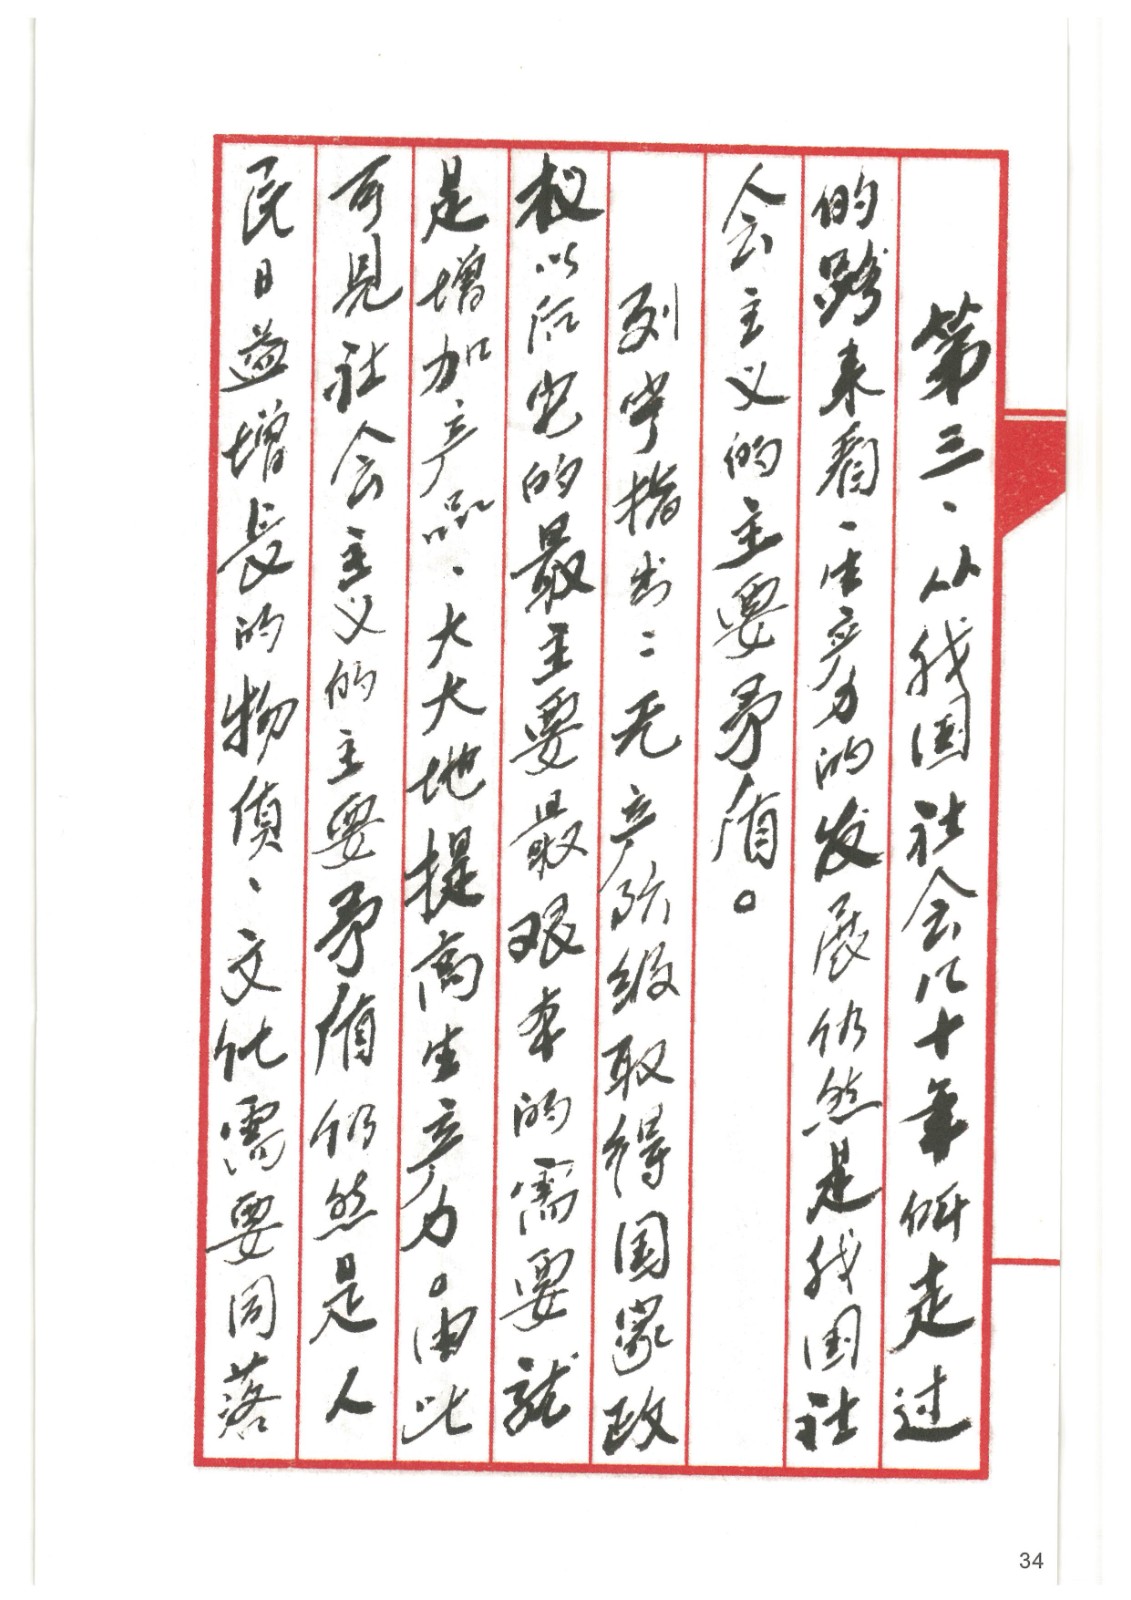 第三、从我国社会几十年所走过
的路来看、生产力的发展仍然是我国社
会主义的主要矛盾。
列宁指出：无产阶级取得国家政
权以后它的最主要最根本的需要就
是增加产品、大大地提高生产力。由此
可见社会主义的主要矛盾仍然是人
民日益增长的物质、文化需要同落
34